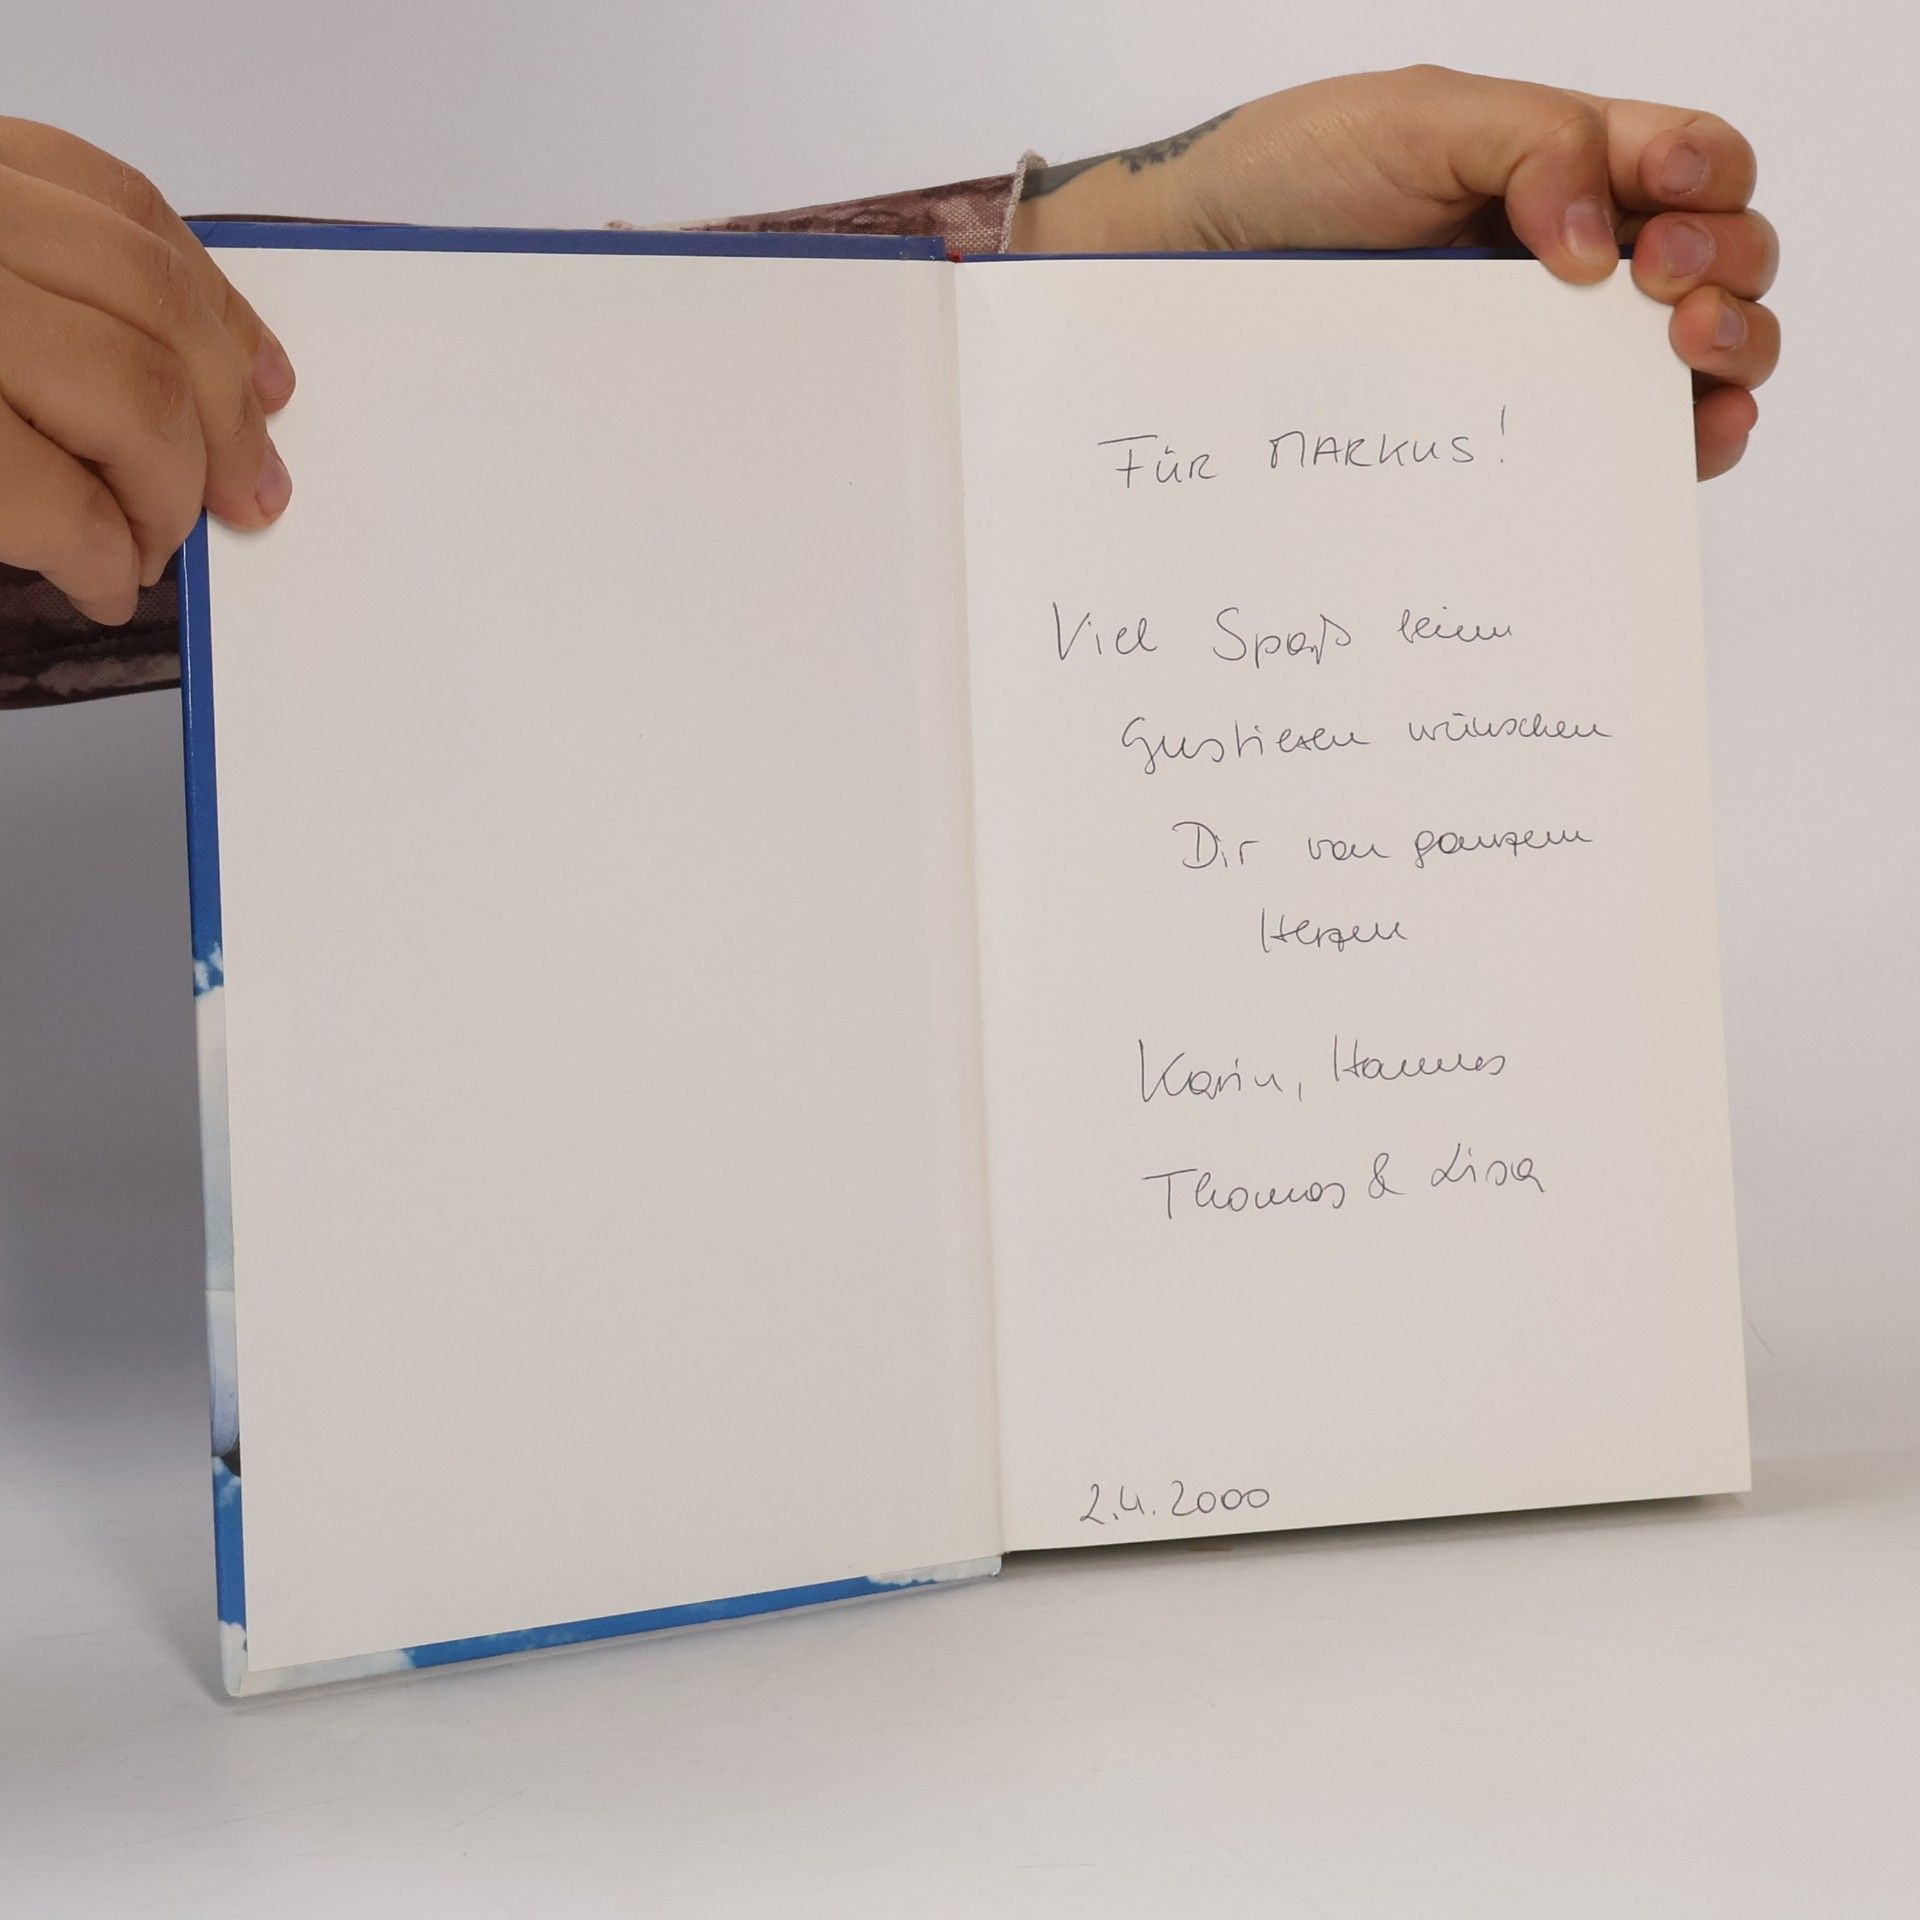 Für MARKUS!
Viel Spaß beim
Gustieren wünschen
Dir von ganzem
Herzen
Karin, Hannes
Thomas & Lisa
2.4.2000